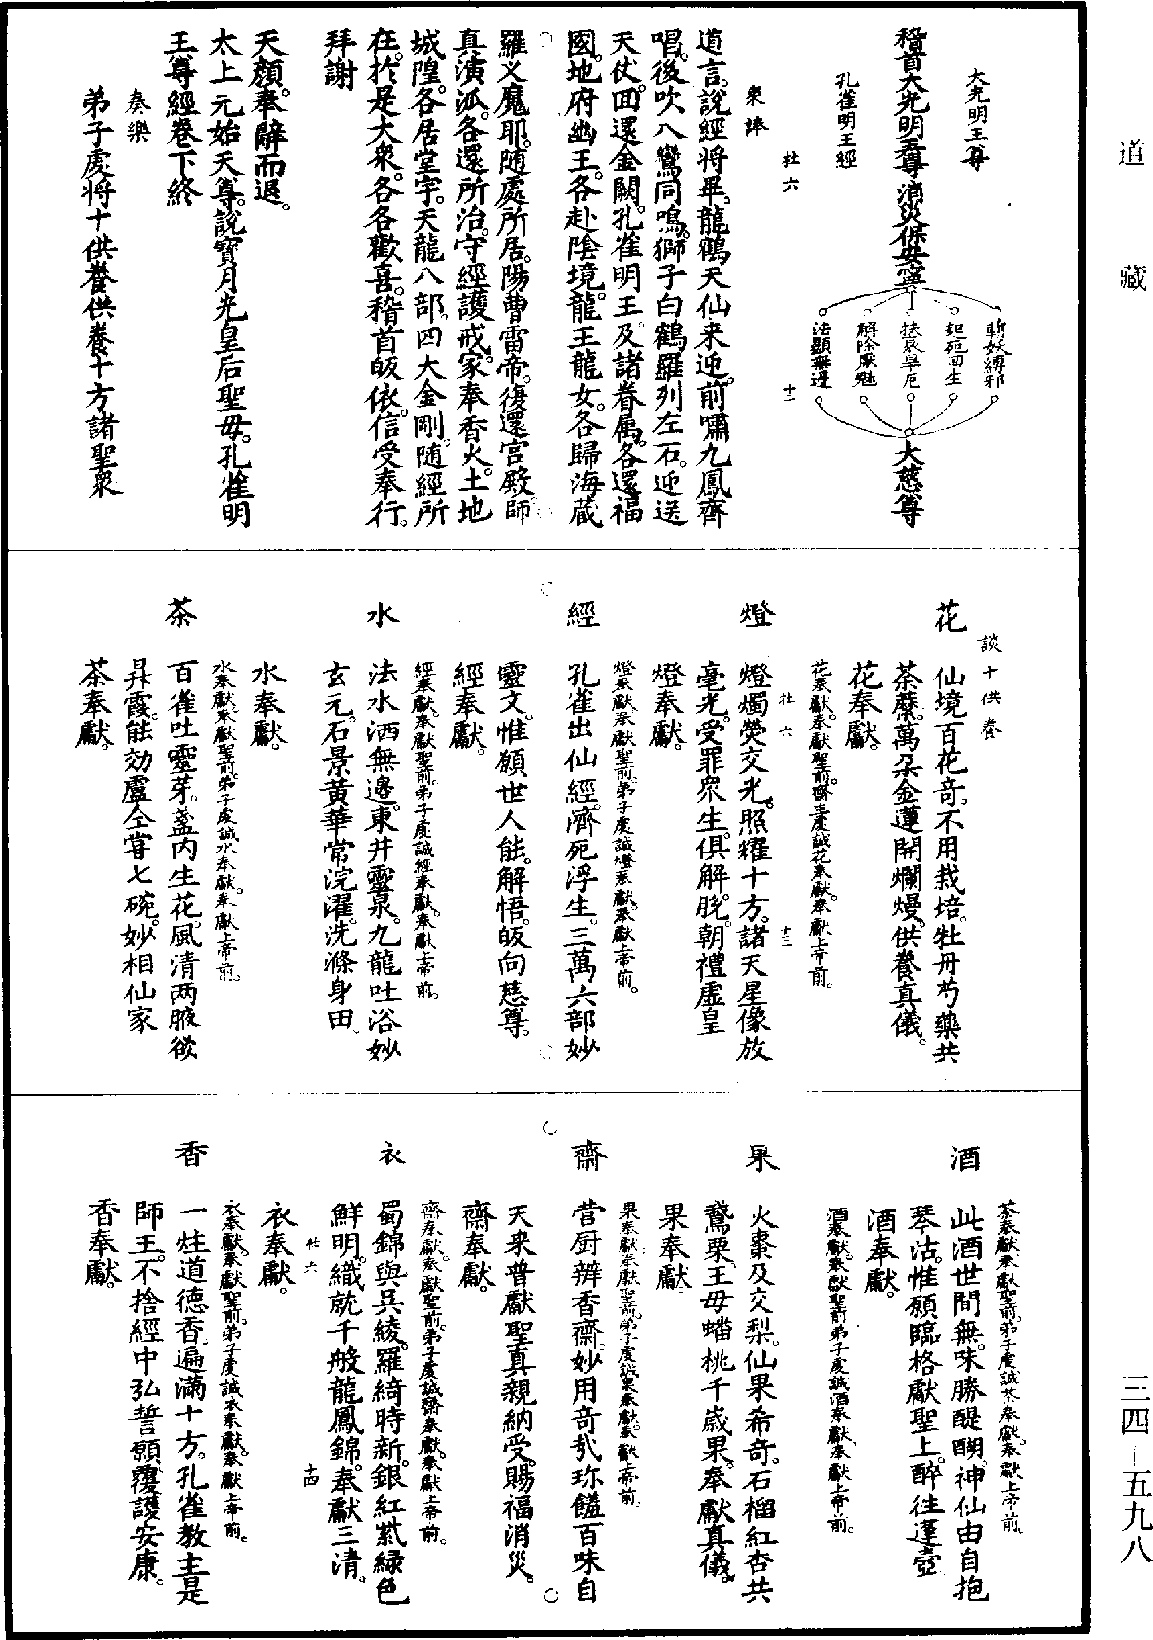 道藏
三四—五九八
大光明王尊
稽首大光明王尊消災保安寧
斬妖縛邪
起死回生
扶衰學厄
解除厭魅
法顯無邊
大慈尊
孔雀明王經
杜六
十二
衆諷
道言。說經將畢。龍鶴天仙来迎。前嘯九鳳齊
唱。後吹八鸞同鳴。獅子白鶴羅列左右。迎送
天仗。囬還金闕。孔雀明王。及諸眷属。各還福
國。地府幽王。各赴陰境。龍王龍女。各歸海藏
羅义魔耶。随處所居。陽曹雷帝。復還宮殿。師
真演派。各還所治。守經護戒。家奉香火。土地
城隍。各居堂宇。天龍八部。四大金剛。随經所
在。扵是大衆。各各歡喜。稽首皈依。信受奉行。
拜謝
天顏。奉辭而退。
太上元始天尊。說寶月光皇后聖母。孔雀明
王尊經卷下終
奏樂
弟子虔将十供養。供養十方諸聖衆
談十供養
花
仙境百花奇。不用栽培。牡丹芍藥共
荼蘼。萬朵金蓮開爛熳。供養真儀。
花奉獻。
花奉獻。奉獻聖前。齋主虔誠花奉獻。奉獻上帝前。
杜六
十三
燈
燈燭熒交光。照耀十方。諸天星像放
毫光。受罪衆生。俱解脫。朝禮虛皇
燈奉獻。
燈奉獻。奉獻聖前。弟子虔誠燈奉獻。奉獻上帝前。
經
孔雀出仙經。濟死浮生。三萬六部妙
靈文。惟願世人能。解悟。皈向慈尊。
經奉獻。
經奉獻。奉獻聖前。弟子虔誠經奉獻。奉獻上帝前。
水
法水洒無邊。東井靈泉。九龍吐浴妙
玄元。石景黃華常浣濯。洗滌身田。
水奉獻。
水奉獻。奉獻聖前。弟子虔誠水奉獻。奉獻上帝前。
茶
百雀吐靈芽。盞内生花。風清两腋欲
昇霞。能効盧仝嘗七碗。妙相仙家
茶奉獻。
茶奉獻。奉獻聖前。弟子虔誠茶奉獻。奉獻上帝前。
酒
此酒世間無。味勝醍醐。神仙由自抱
琴沽。惟願臨格獻聖上。醉往蓬壺
酒奉獻。
酒奉獻。奉獻聖前弟子虔誠酒奉獻。奉獻上帝前。
果
火棗及交梨。仙果希奇。石榴紅杏共
鵞栗。王母蟠桃千歲果。奉獻真儀。
果奉獻
果奉獻。奉獻聖前。弟子虔誠果奉獻。奉獻上帝前。
齋
营厨辦香齋。妙用奇㢤。珎饈百味自
天来。普獻聖真親納受。賜福消災。
齋奉獻。
齋奉獻。奉獻聖前。弟子虔誠齋奉獻。奉獻上帝前。
衣
蜀錦與吳綾。羅綺時新。銀紅紫緑色
鮮明。織就千般龍鳳錦。奉獻三清。
衣奉獻。
杜六
十四
衣奉獻。奉獻聖前。弟子虔誠衣奉獻。奉獻上帝前。
香
一炷道德香。遍滿十方。孔雀教主是
師王。不捨經中弘誓願。覆護安康。
香奉獻。